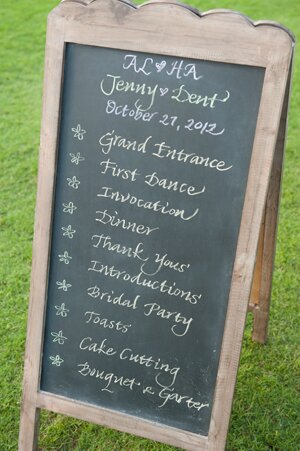 AL♥HA
Jenny ♥ Dent
October 27, 2012
Grand Entrance
First Dance
Invocation
Dinner
Thank yous'
Introductions'
Bridal Party
Toasts'
Cake Cutting
Bouquet & Garter